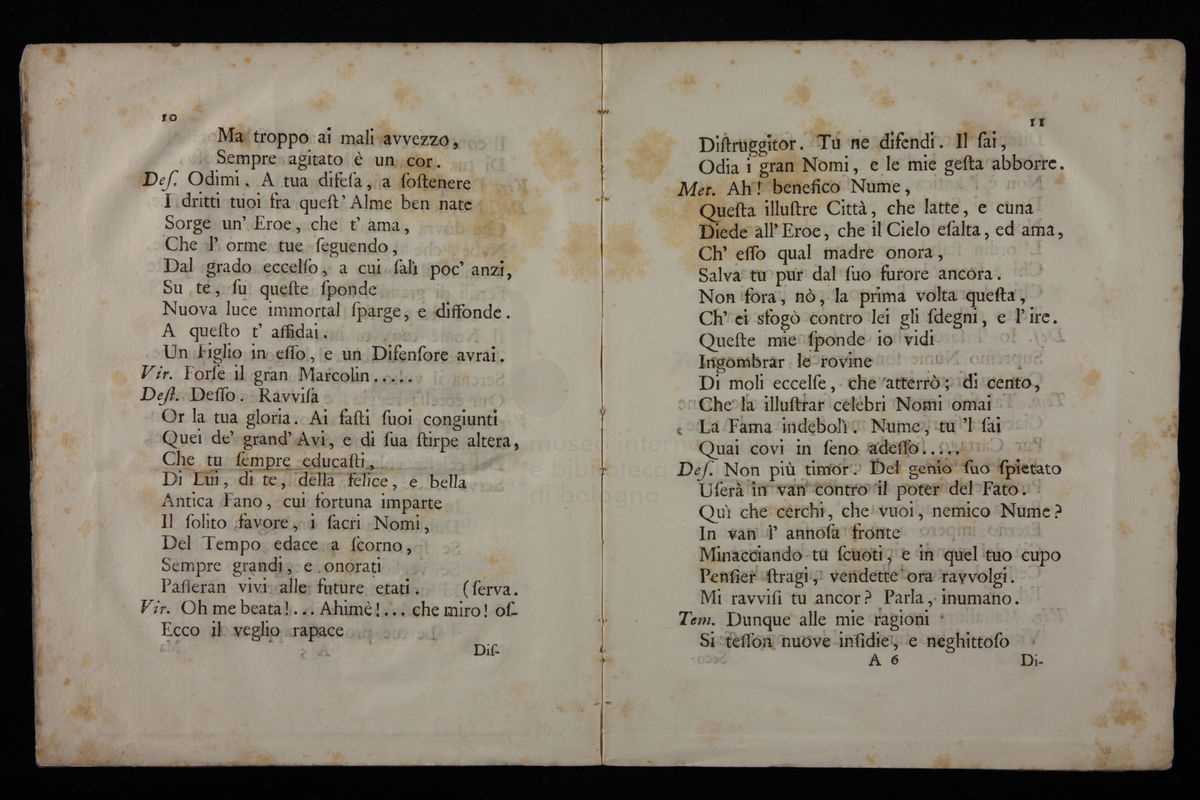 10
Ma troppo ai mali avvezzo,
Sempre agitato è un cor.
Deſ. Odimi. A tua difeſa, a ſoſtenere
I dritti tuoi fra queſt' Alme ben nate
Sorge un' Eroe, che t' ama,
Che l' orme tue ſeguendo,
Dal grado eccelſo, a cui ſalì poc' anzi,
Su te, ſu queſte ſponde
Nuova luce immortal ſparge, e diffonde.
A queſto t' affidai.
Un Figlio in eſſo, e un Difenſore avrai.
Vir. Forſe il gran Marcolin.....
Deſt. Deſſo. Ravviſa
Or la tua gloria. Ai faſti ſuoi congiunti
Quei de' grand' Avi, e di ſua ſtirpe altera,
Che tu ſempre educaſti,
Di Lui, di te, della felice, e bella
Antica Fano, cui fortuna imparte
Il ſolito favore, i ſacri Nomi,
Del Tempo edace a ſcorno,
Sempre grandi, e onorati
Paſſeran vivi alle future etati. (ſerva.
Vir. Oh me beata!... Ahimè!... che miro! oſ-
Ecco il veglio rapace
Diſ-
11
Diſtruggitor. Tu ne difendi. Il ſai,
Odia i gran Nomi, e le mie geſta abborre.
Mer. Ah! benefico Nume,
Queſta illuſtre Città, che latte, e cuna
Diede all' Eroe, che il Cielo eſalta, ed ama,
Ch' eſſo qual madre onora,
Salva tu pur dal ſuo furore ancora.
Non fora, nò, la prima volta queſta,
Ch' ei sfogò contro lei gli ſdegni, e l' ire.
Queſte mie ſponde io vidi
Ingombrar le rovine
Di moli eccelſe, che atterrò; di cento,
Che la illuſtrar celebri Nomi omai
La Fama indebolì. Nume, tu 'l ſai
Quai covi in ſeno adeſſo.....
Deſ. Non più timor. Del genio ſuo ſpietato
Uſerà in van contro il poter del Fato.
Quì che cerchi, che vuoi, nemico Nume?
In van l' annoſa fronte
Minacciando tu ſcuoti, e in quel tuo cupo
Penſier ſtragi, vendette ora ravvolgi.
Mi ravviſi tu ancor? Parla, inumano.
Tem. Dunque alle mie ragioni
Si teſſon nuove inſidie, e neghittoſo
A 6
Di-